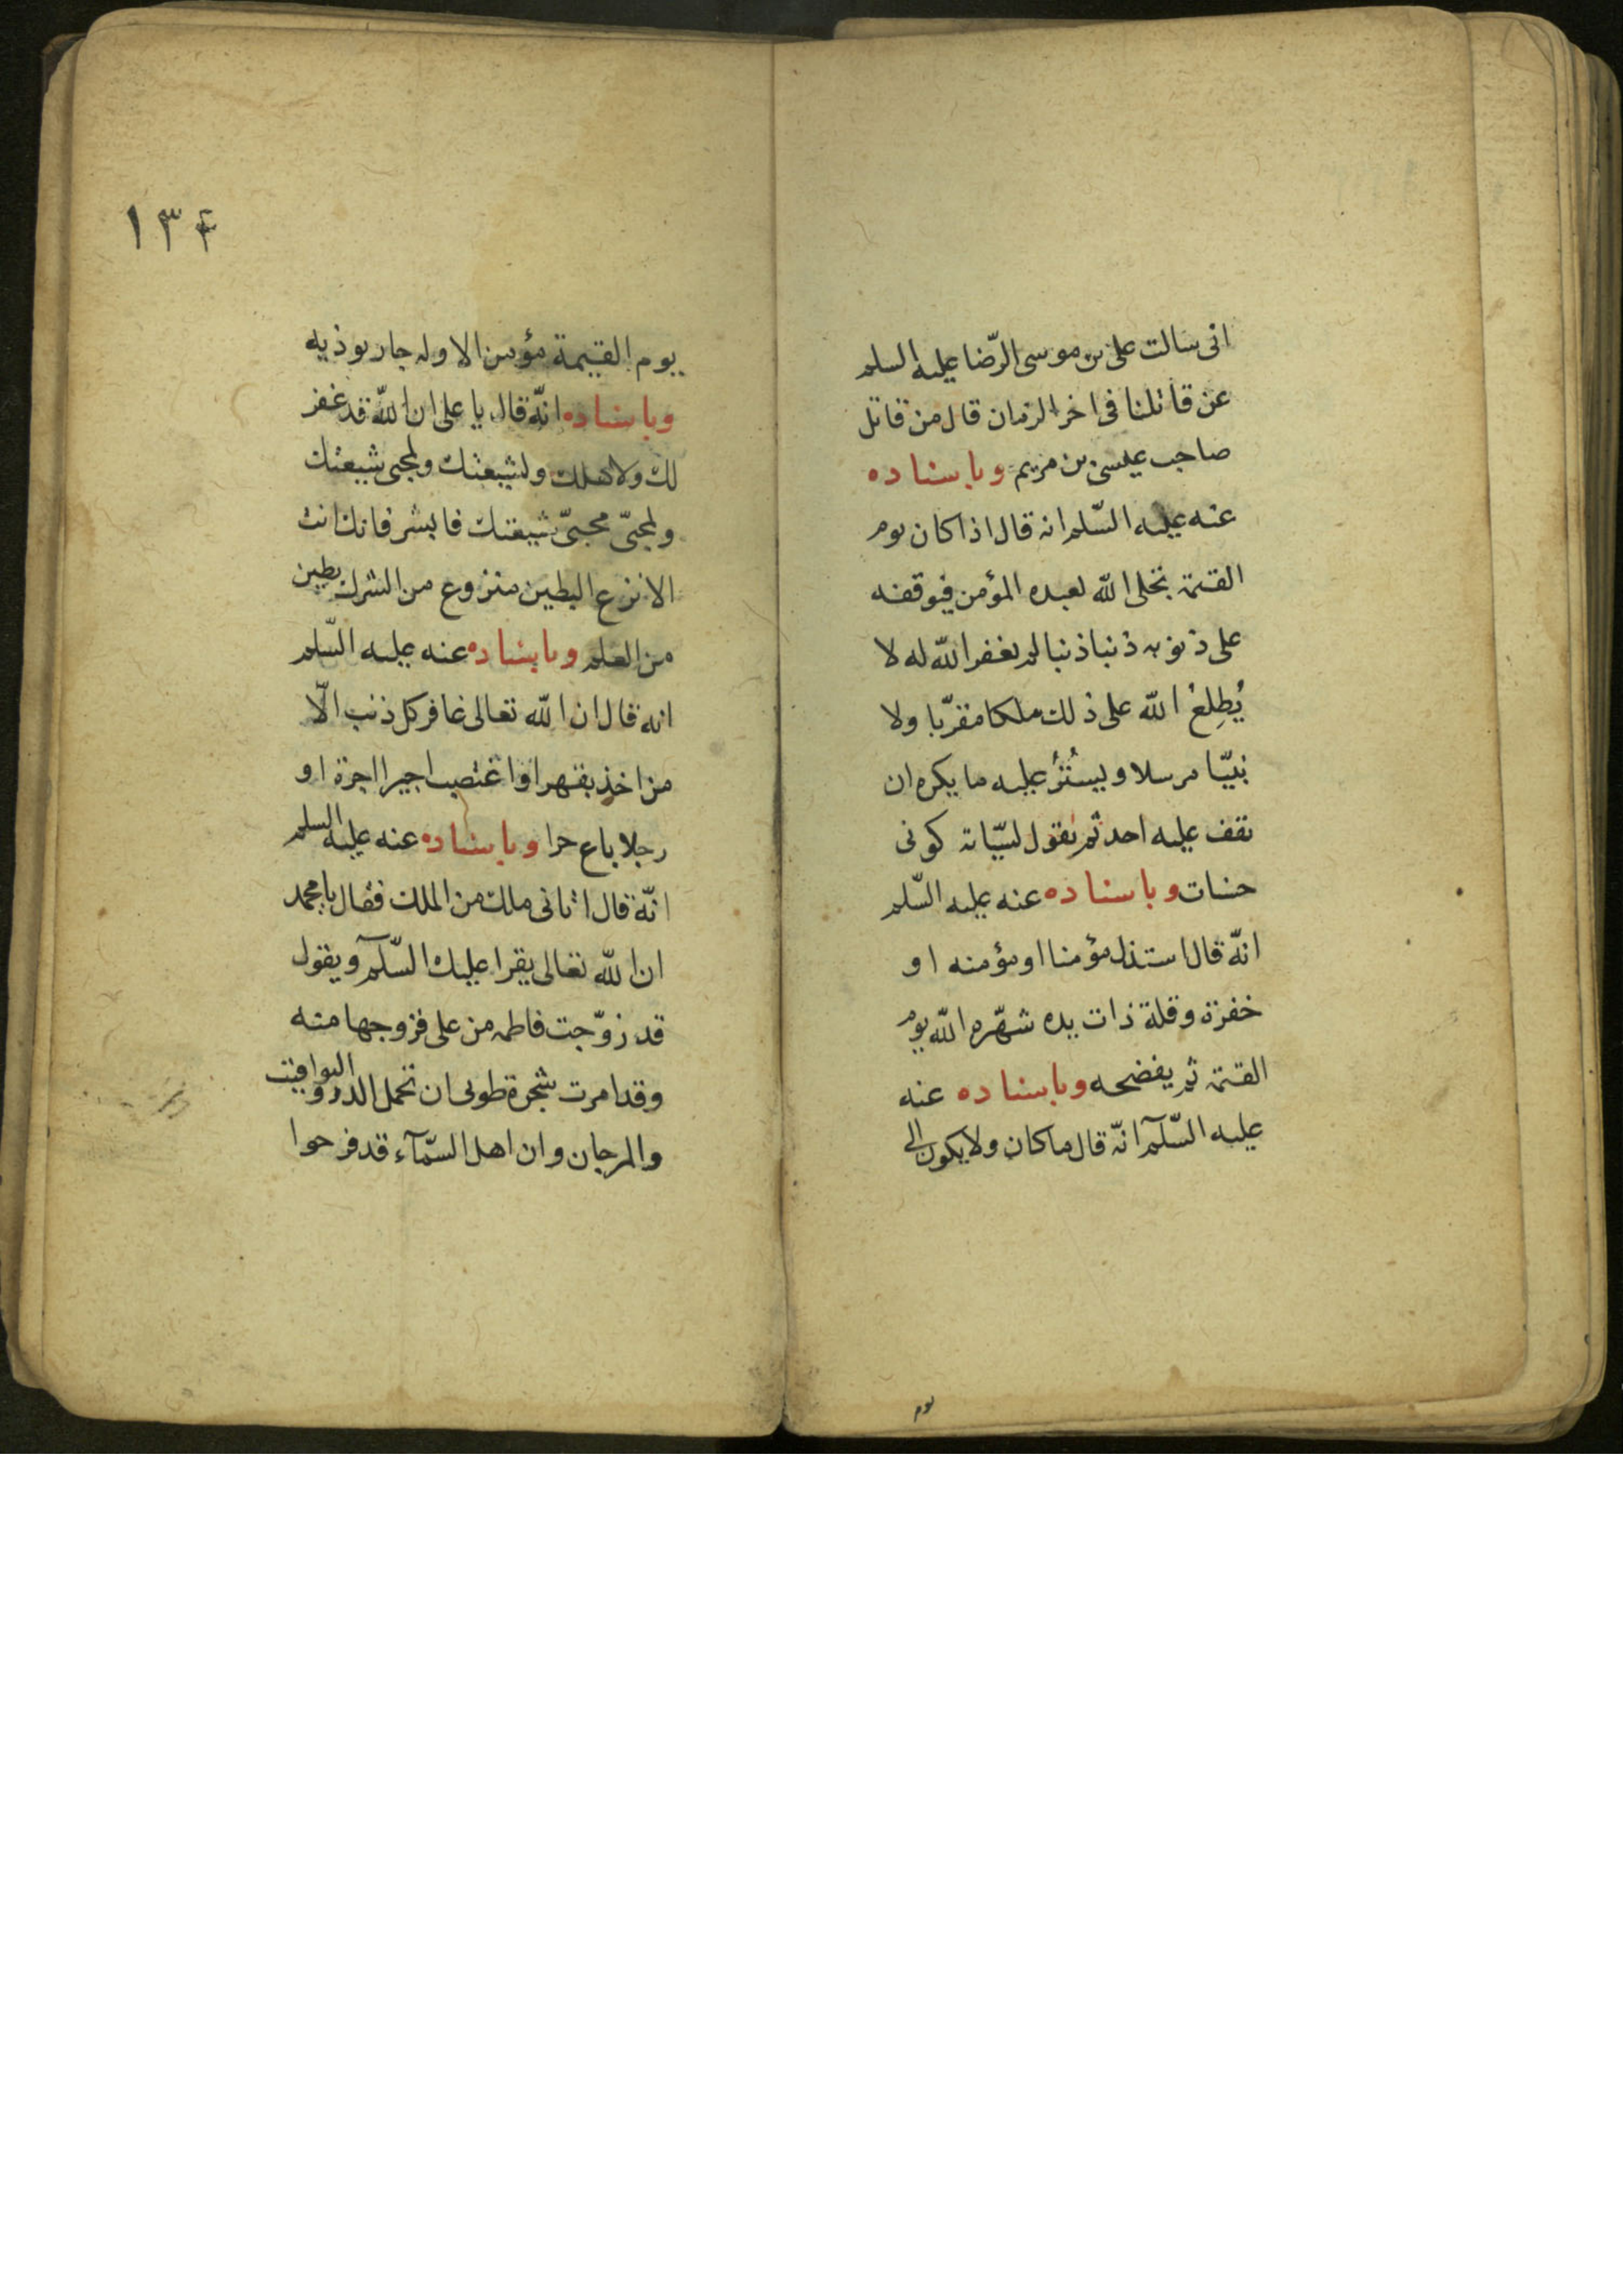 انى سالت على بن موسى الرّضا عليه السلم
عن قاتلنا فى اخر الزمان قال من قاتل
صاحب عيسى بن مريم وباسناده
عنه عليه السّلم انه قال اذا كان يوم
القيمة تجلى الله لعبده المؤمن فيوقفه
على ذنوبه ذنبا ذنبا لم يغفر الله له لا
يُطِلعُ الله على ذلك ملكا مقرّبا ولا
نبيّا مرسلا ويستُرُ عليه ما يكره ان
يقف عليه احد ثم يقول لسيّاته كونى
حسنات وباسناده عنه عليه السّلم
انّه قال استذل مؤمنا او مؤمنه او
حفره وقلة ذات يده شهّره الله يوم
القيمة ثم يفضحه وباسناده عنه
عليه السّلم انّه قال ما كان ولا يكون الى
يوم
١٣۴
يوم القيمة مؤمن الا وله جار يوذيه
وباسناده انّه قال يا على ان الله قد غفر
لك ولاهلك ولشيعتك ولمحبى شيعتك
ولمحبّى محبىّ شيعتك فابشر فانك انت
الانزع البطين منزوع من الشرك بطين
من العلم وباسناده عنه عليه السّلم
انه قال ان الله تعالى غافر كل ذنب الّا
من اخذ بقهر او اغتصب اجيرا اجرة او
رجلا باع حرا وباسناده عنه عليه السلم
انّه قال اتانى ملك من الملك فقال يا محمد
ان الله تعالى يقرا عليك السّلم ويقول
قد زوّجت فاطمه من على فزوجها منه
وقد امرت شجرة طوبى ان تحمل الدر واليواقيت
والمرجان وان اهل السّمآء قد فرحوا